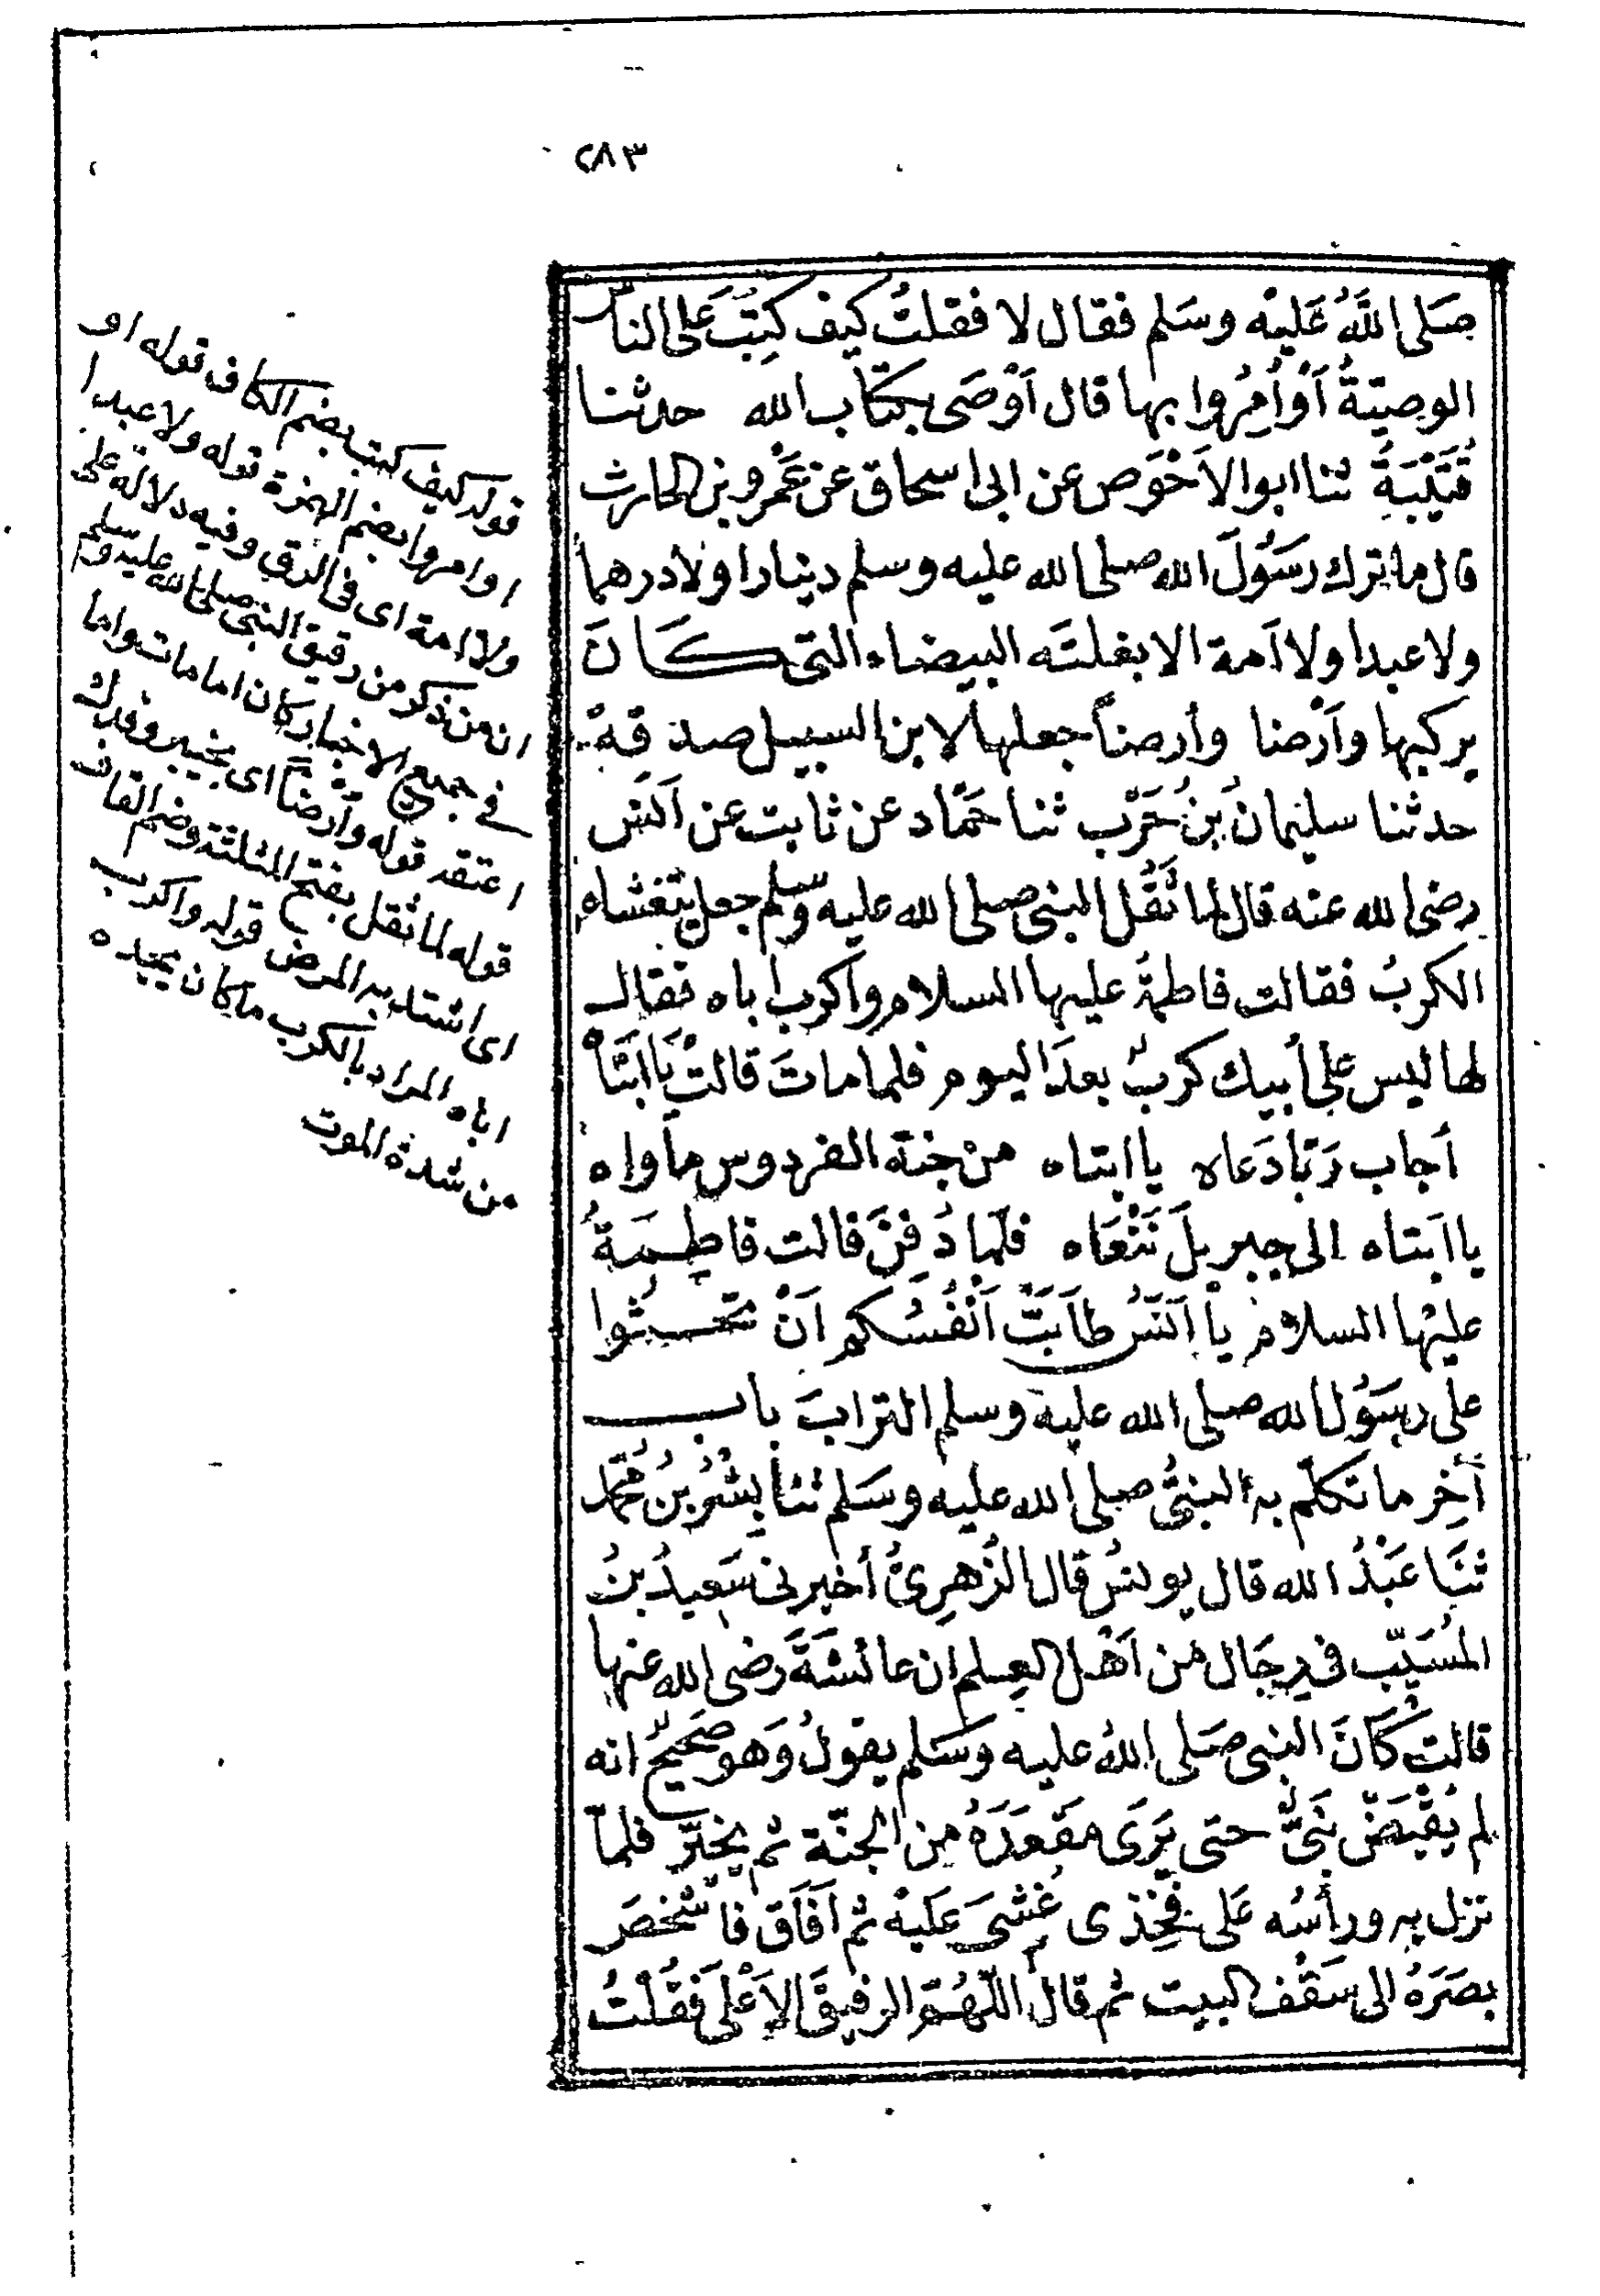 ٢٨٣
صَلى اللهُ عَليْه وسَلم فقال لا فقلتُ كيف كُتِبَ عَلى الناس
الوصيّةُ أوْ أُمِرُوا بها قال أوْصَى بكتَاب الله حدثنا
قُتَيْبَةُ ثنا ابوالاَحْوَص عن ابى اسحاق عن عَمْرو بن الحارث
قال ما ترك رسُولَ الله صلى الله عليه وسلم دينارا ولا درهما
ولا عبدا ولا اَمة الا بغلتَه البيضاء التى كَانَ
يركبها وأرْضا وأرضاً جعلها لابن السبيل صدقةْ
حدثنا سليمانُ بنُ حَرْب ثنا حَمّاد عن ثابت عن اَنَس
رضى الله عنه قال لما ثَقُل النبى صلى الله عليه وسلم جعل يتغشاه
الكربُ فقالت فاطمةُ عليها السلام واكرب اباه فقال
لها ليس على أبيك كربٌ بعدَ اليوم فلما ماتَ قالتْ يَا ابَتَاْه
أجاب رَبّا دَعاه يا ابتاه منْ جنة الفردوس مأواه
يا ابَتاه الى جبريلَ نَنْعَاه فلمّا دُفِنَ قالت فاطِمَةُ
عليْها السلام يا اَنَسُ طاَبَتْ اَنْفُسُكم اَنْ تحثُوا
على رسَوُل الله صلى الله عليه وسلم الترابَ باب
آخِر ما تكلّم به النبىُّ صلى الله عليه وسَلم ثنا بِشْرُ بنُ محمّد
ثنَا عَبْدُ الله قال يونسُ قال الزُهرِىُّ أخبرنى سَعيدُ بنُ
المُسَيّب فى رِجَال من اَهْل العِلم ان عائشَةَ رضى الله عنها
قالتْ كَانَ النبى صَلى اللهُ عليه وسَلم يقولُ وَهو صَحيحٌ انه
لم يُقْبَضْ نَبىٌّ حتى يَرَى مقعَدَهُ من الجنّة ثم يخيّر فلمّا
نزل به ورأسُه عَلى فخِذى غُشىَ عَلَيه ثم اَفَاق فاشْخصَ
بصَرَهُ الى سَقْف البيت ثم قال اللّهُمّ الرفيقَ الاَعْلى فقُلْتُ
قوله كيف كتب بضم الكاف قوله او
او امروا بضم الهمزة قوله ولا عبدا
ولا امة اى فى الرق وفيه دلالة على
ان من ذكر من رقيق النبى صلى الله عليه وسلم
فى جميع الاخبار كان اما مات واما
اعتقه قوله وأرضاً اى بخيبر وفدك
قوله لما ثقل بفتح المثلثة وضم القاف
اى اشتد به المرض قوله واكرب
اباه المراد بالكرب ما كان يجده
من شدة الموت